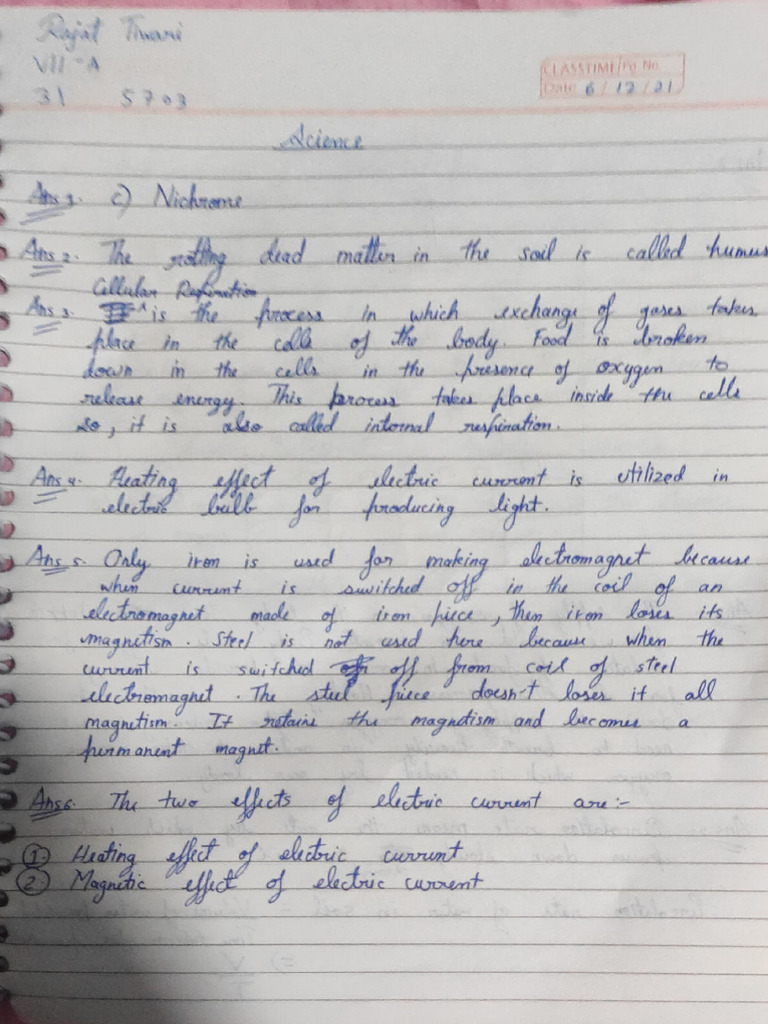 Rajat Tiwari
VII-A
31 5703
CLASSTIME/Pg. No.
Date 6/12/21
Science
Ans 1. c) Nichrome
Ans 2. The rotting dead matter in the soil is called humus
Cellular Respiration
Ans 3. is the process in which exchange of gases takes
place in the cells of the body. Food is broken
down in the cells in the presence of oxygen to
release energy. This process takes place inside the cells
so, it is also called internal respiration.
Ans 4. Heating effect of electric current is utilized in
electric bulb for producing light.
Ans 5. Only iron is used for making electromagnet because
when current is switched off in the coil of an
electromagnet made of iron piece, then iron loses its
magnetism. Steel is not used here because when the
current is switched off from coil of steel
electromagnet. The steel piece doesn't loses it all
magnetism. It retains the magnetism and becomes a
permanent magnet.
Ans 6. The two effects of electric current are:-
1 Heating effect of electric current
2 Magnetic effect of electric current